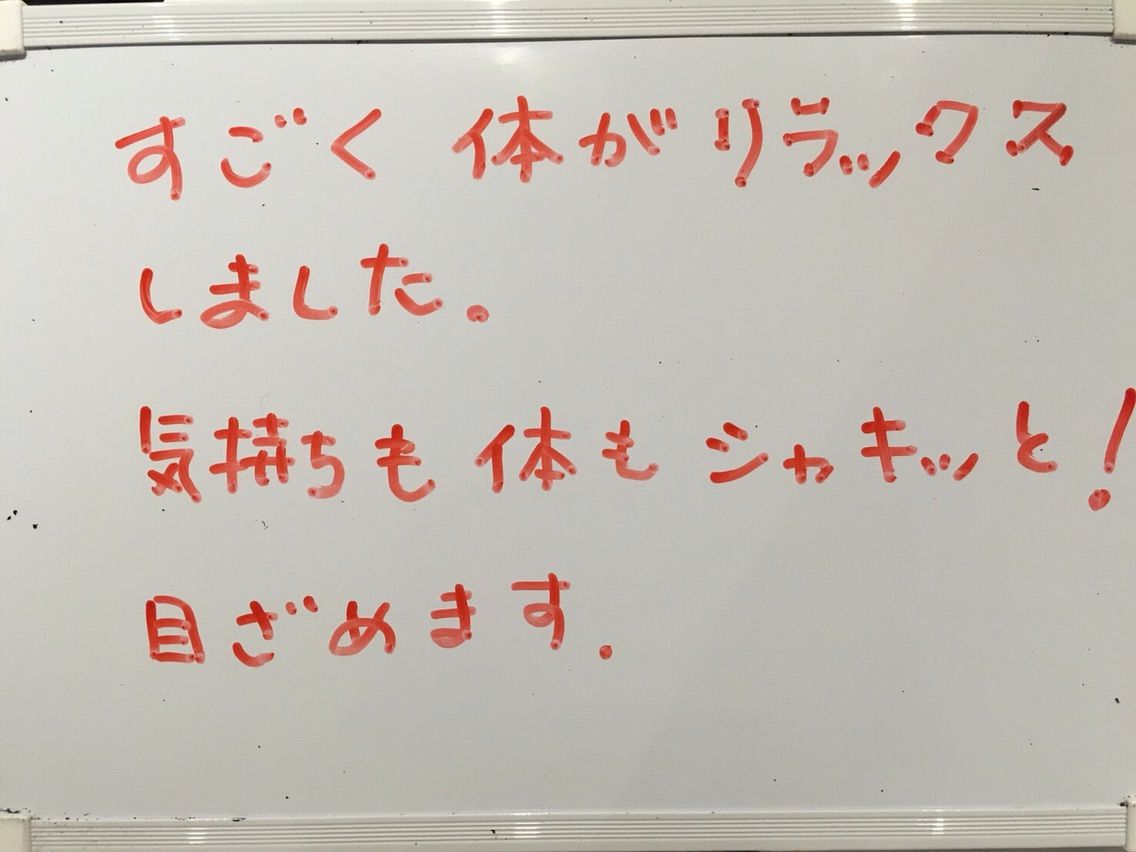 すごく 体がリラックス
しました。
気持ちも 体も シャキッと!
目ざめます.